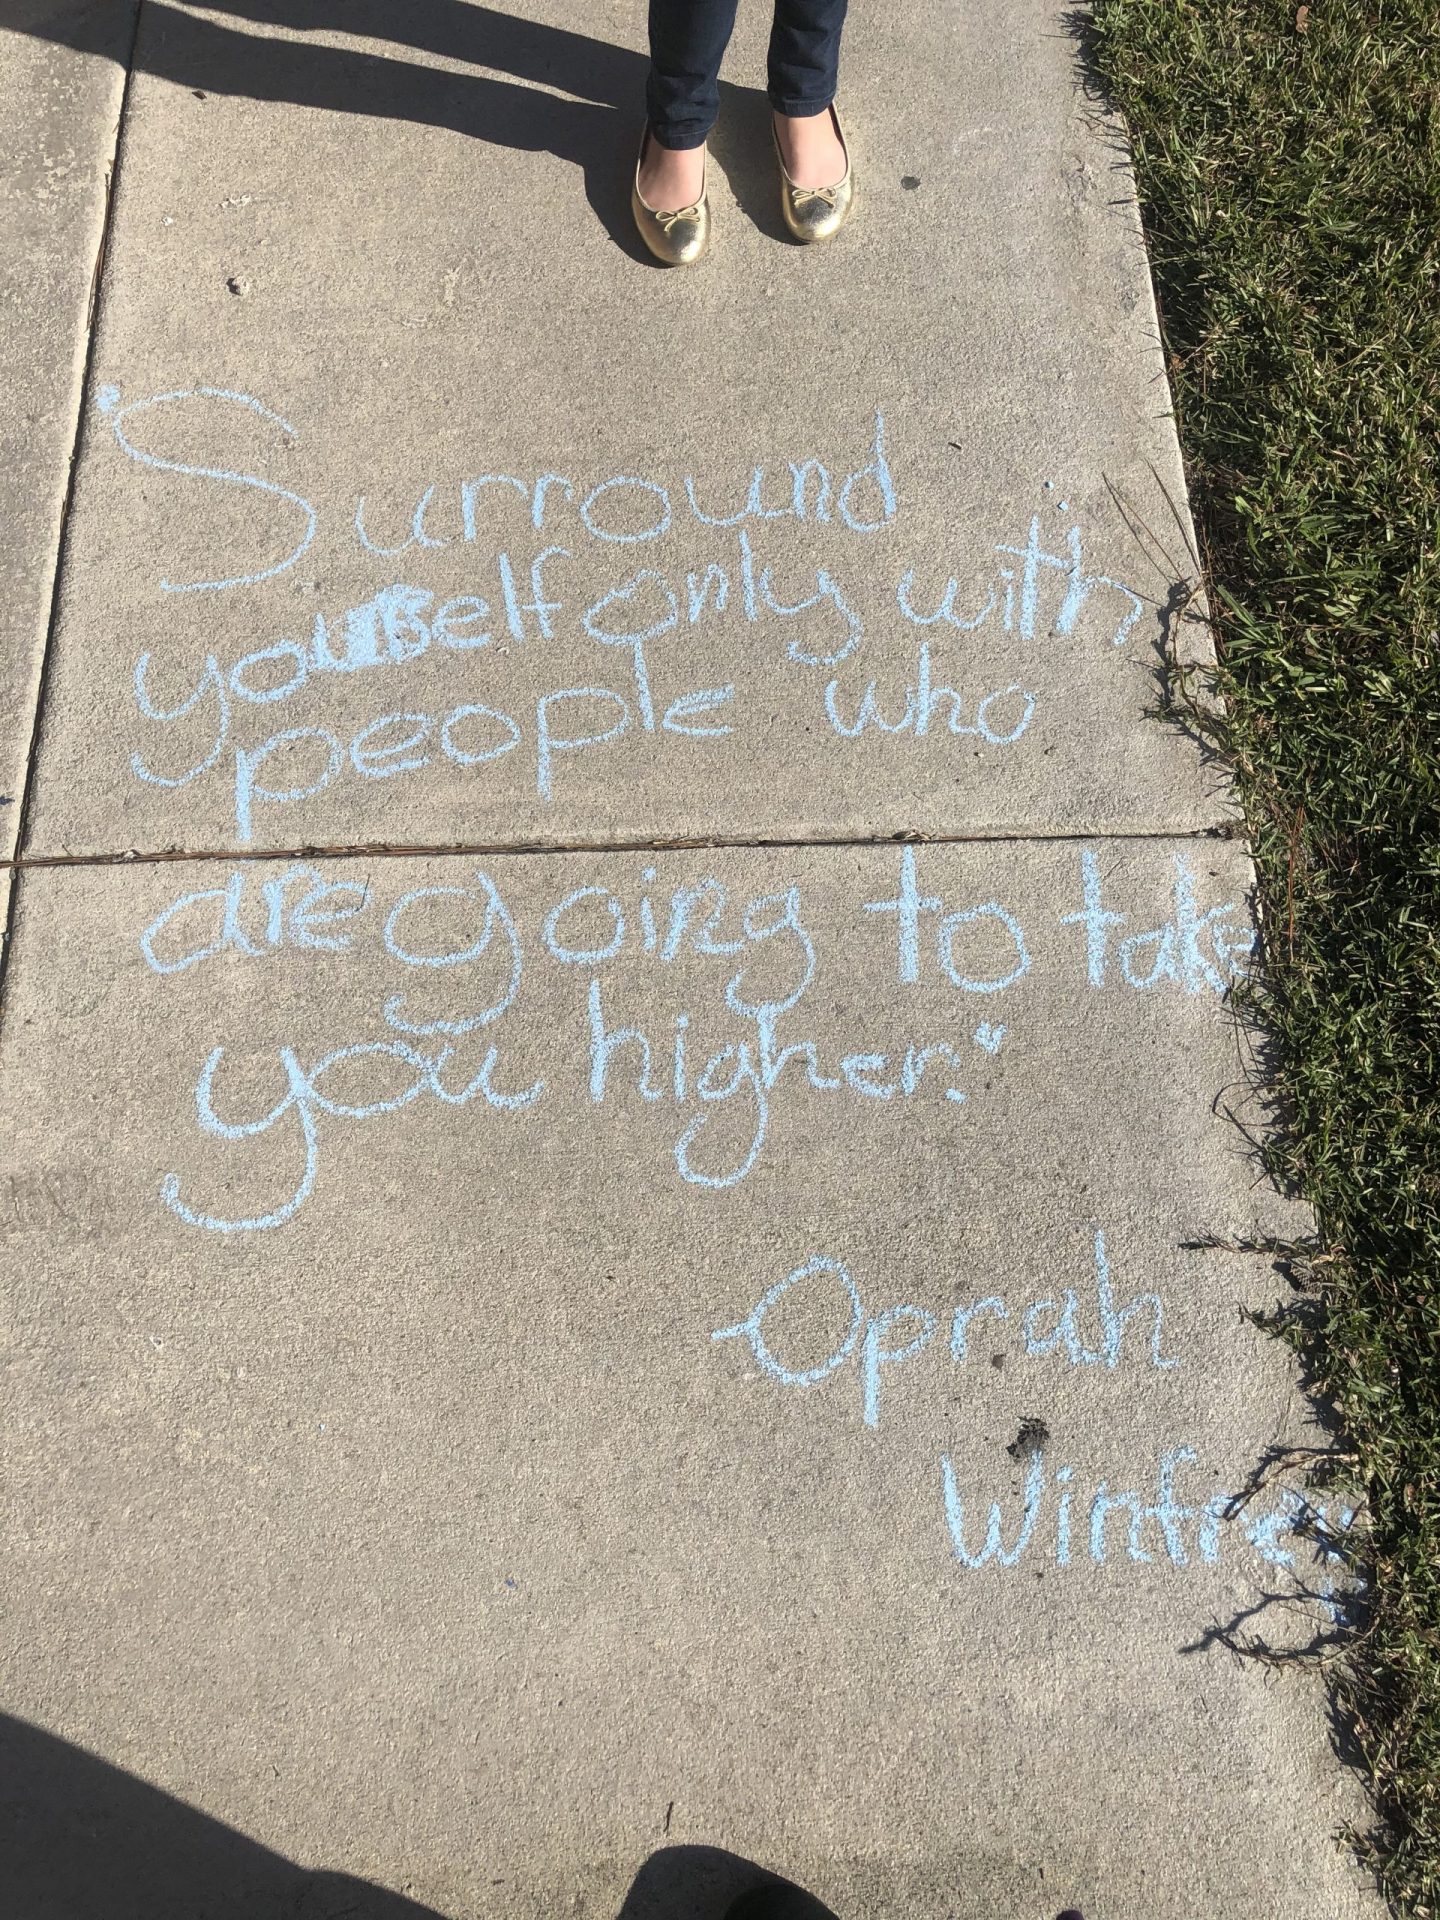 "Surround
yourself only with
people who
are going to take
you higher."
Oprah
Winfrey